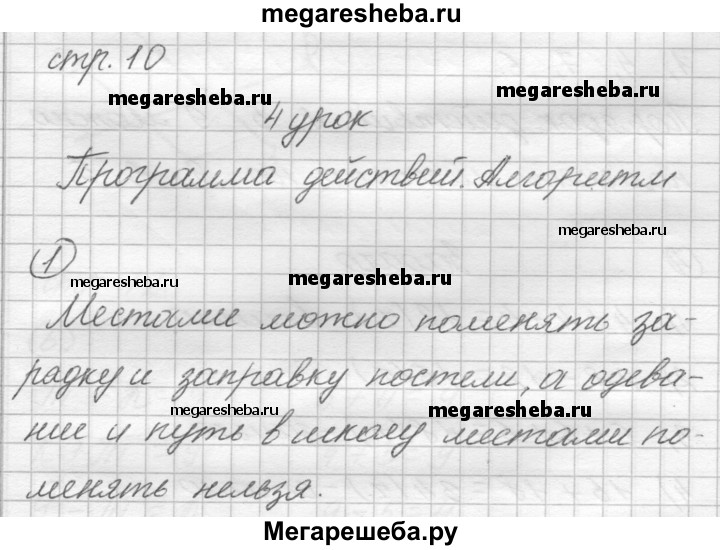 megaresheba.ru
стр. 10
megaresheba.ru
megaresheba.ru
4 урок
Программа действий. Алгоритм
megaresheba.ru
1
megaresheba.ru
megaresheba.ru
Местами можно поменять за-
рядку и заправку постели, а одева-
megaresheba.ru
megaresheba.ru
ние и путь в школу местами по-
менять нельзя.
Мегарешеба.ру